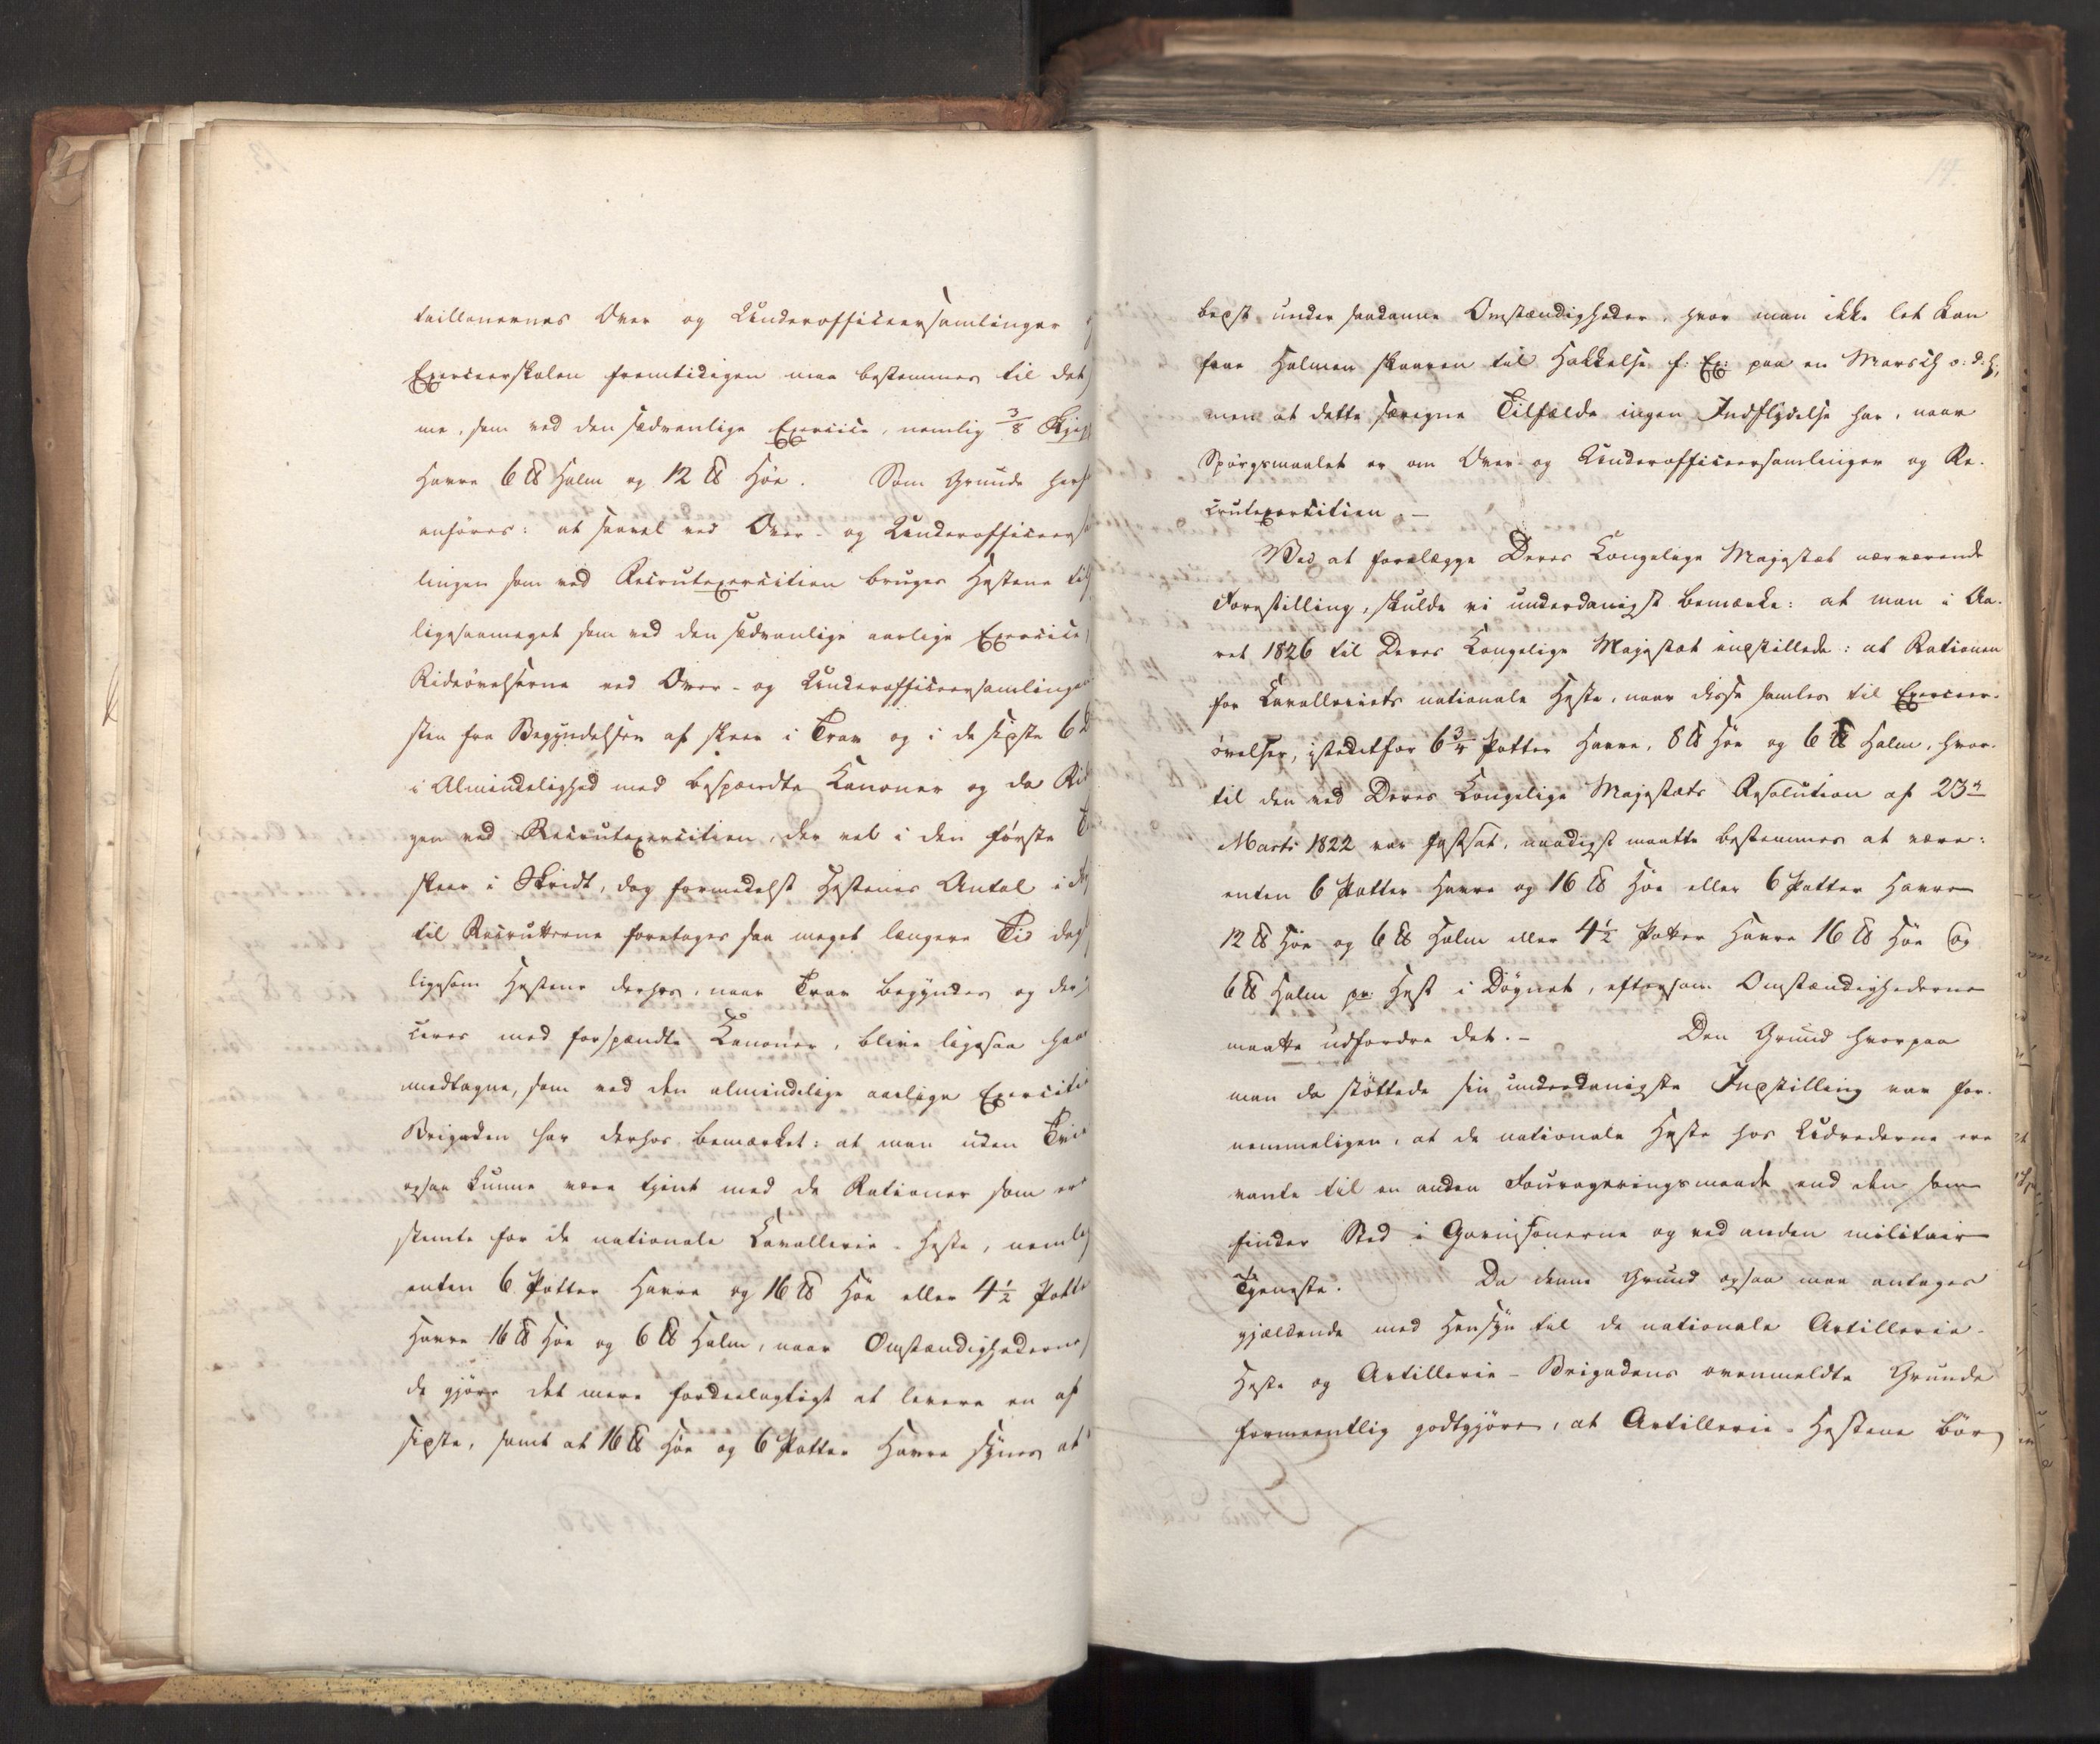 taillonernes Over og Underofficeersamlinger
Exerceerskolen fremtidigen maa bestemmes til det
me, som ved den sædvanlige Exercice, nemlig 3/8 Skjep
Havre 6 ℔ Halm og 12 ℔ Höe. Som Grunde her
anföres: at saavel ved Over- og Underofficeers
lingen som ved Recrutexercitien bruges Hestene
ligesaameget som ved den sædvanlige aarlige Exercice,
Rideövelserne ved Over- og Underofficeersamlingen
sten fra Begyndelsen af skeer i Trav og i de sidste 6
i Almindelighed med bespændte Kanoner og da Rid
gen ved Recrutexercitien, der vel i den förste
skeer i Skridt, dog formedelst Hestenes Antal i
til Recrutterne foretages saa meget længere Tid dag
ligesom Hestene derhos, naar Trav begyndes og
ceres med forspændte Kanoner, blive ligesaa haa
medtagne, som ved den almindelige aarlige Exerciti
Brigaden har derhos bemærket: at man uden Tvi
ogsaa kunne være tjent med de Rationer som er
stemte for de nationale Cavallerie-Heste, nemlig
enten 6 Potter Havre og 16 ℔ Höe eller 4 1/2 Potte
Havre 16 ℔ Höe og 6 ℔ Halm, naar Omstændighederne
de gjöre det mere fordeelagtigt at levere en af
sidste, samt at 16 ℔ Höe og 6 Potter Havre synes at
14.
bedst under saadanne Omstændigheder, hvor man ikke let kan
faae Halmen skaaren til Hakkelse f: Ex: paa en Marsch o: d: s:,
men at dette særegne Tilfælde ingen Indflydelse har, naar
Spörgsmaalet er om Over- og Underofficeersamlinger og Re-
crutexercitien. —
Ved at forelægge Deres Kongelige Majestæt nærværende
Forestilling, skulde vi underdanigst bemærke: at man i Aa-
ret 1826 til Deres Kongelige Majestæt indstillede: at Rationen
for Cavalleriets nationale Heste, naar disse samles til Exerceer-
övelser, istedetfor 6 3/4 Potter Havre, 8 ℔ Höe og 6 ℔ Halm, hvor-
til den ved Deres Kongelige Majestæts Resolution af 23de
Marts 1822 var fastsat, naadigst maatte bestemmes at være:
enten 6 Potter Havre og 16 ℔ Höe eller 6 Potter Havre
12 ℔ Höe og 6 ℔ Halm eller 4 1/2 Potter Havre 16 ℔ Höe og
6 ℔ Halm pr. Hest i Dögnet, eftersom Omstændighederne
maatte udfordre det. — Den Grund hvorpaa
man da stöttede sin underdanigste Indstilling var for-
nemmeligen, at de nationale Heste hos Udrederne ere
vante til en anden Fourageringsmaade end den som
finder Sted i Garnisonerne og ved anden militair
Tjeneste. Da denne Grund ogsaa maa antages
gjældende med Hensyn til de nationale Artillerie-
Heste og Artillerie-Brigadens ovenmeldte Grunde
formeentlig godtgjöre, at Artillerie-Hestene bör